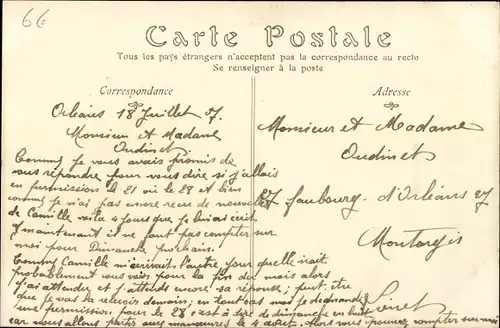 66
Carte Postale
Tous les pays étrangers n'acceptent pas la correspondance au recto
Se renseigner à la poste
Correspondance
Orléans 18 Juillet 07.
Monsieur et Madame
Oudinet
Comme Je vous avais promis de
vous répondre pour vous dire si j'allais
en permission le 21 où le 28 et bien
comme je n'ai pas encore recus de nouvelles
de Camille voila 4 jours que je lui ai écrit
maintenant il ne faut pas compter sur
moi pour Dimanche prochain.
Comme Camille m'écrivait l'autre jour quelle irait
probablement vous voir pour la fin du mois alors
j'ai attender et j'attends encore sa réponse; peut être
que je vas la recevoir demain; en tout cas moi je demande
une permission. pour le 28 c'est à dire dimanche en huit
car nous allons partir aux manœuvres le 4 août. Alors vous pourrez compter sur moi
Adresse
Monsieur et Madame
Oudinet
27 faubourg d'Orléans 27
Montargis
Loiret